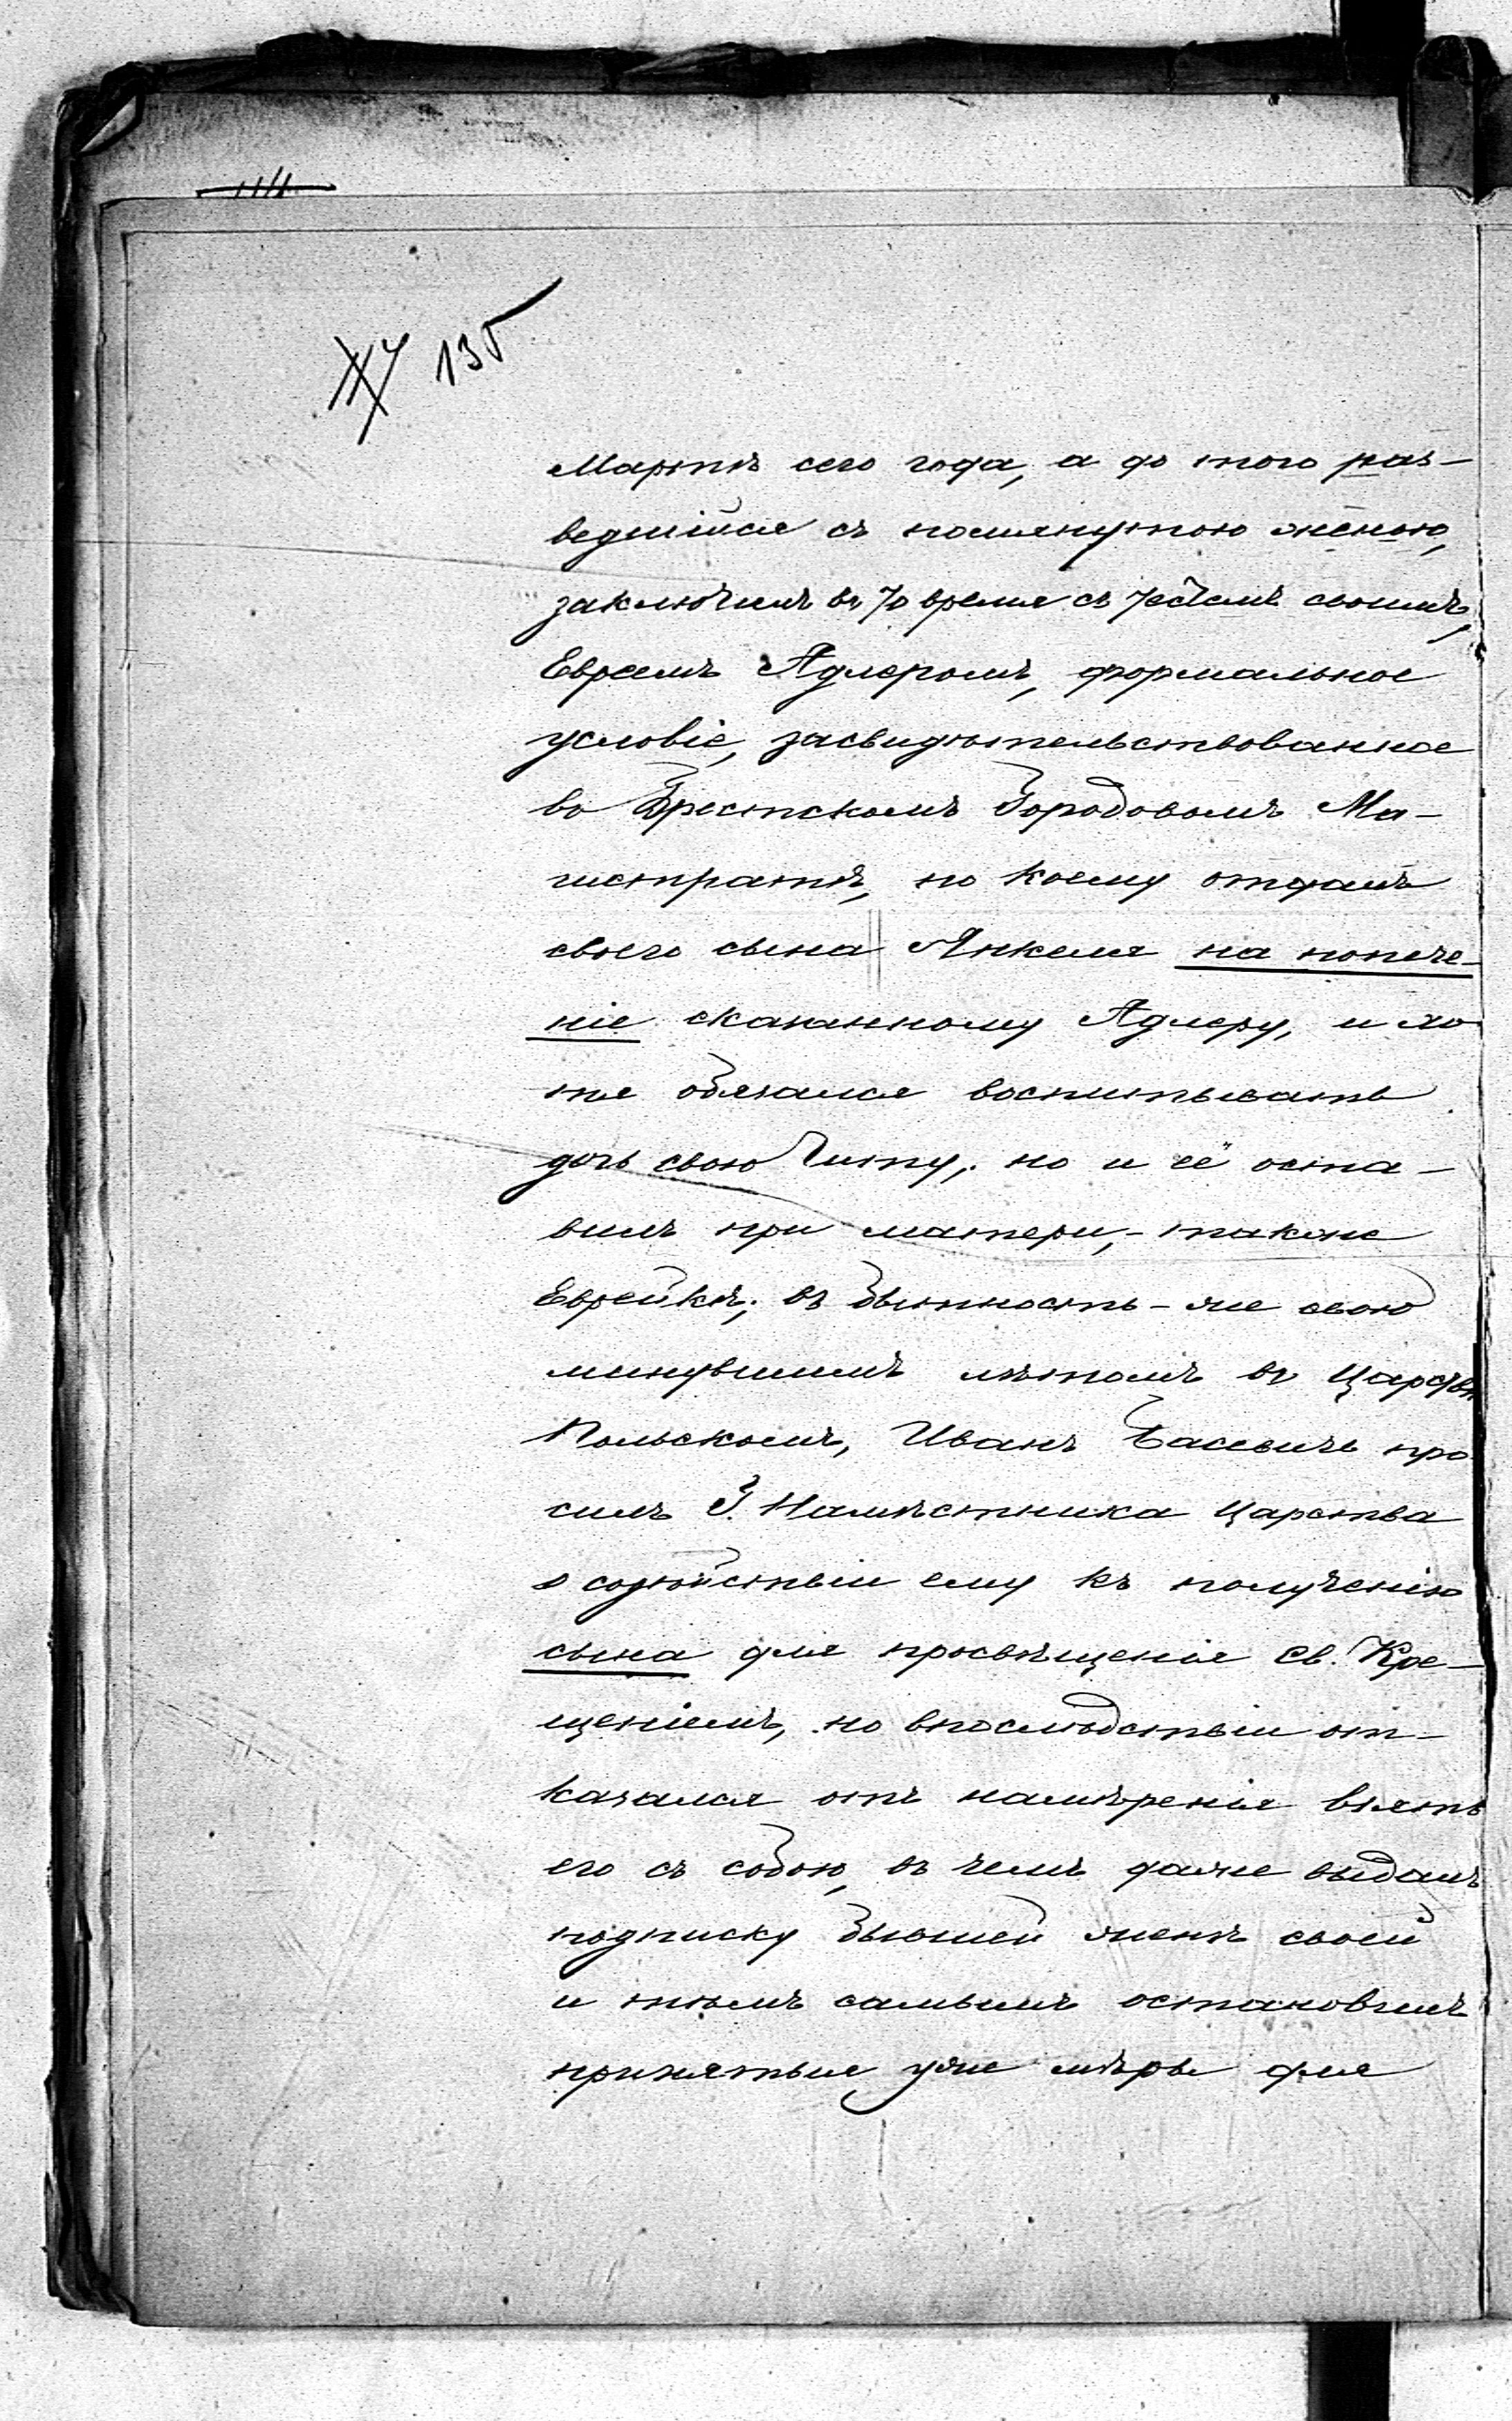 135
Мартѣ сего года, а до того раз-
ведшійся съ помянутою женою,
заключилъ въ то время съ тестемъ своимъ,
Евреемъ Адлеромъ, формальное
условіе, засвидѣтельствованное
во Брестскомъ Городовомъ Ма-
гистратѣ, по коему отдалъ
своего сына Янкеля на попече-
ніе сказанному Адлеру, и хо-
тя обязался воспитывать
дочь свою Гиту, но и её оста-
вилъ при матери,- также
Еврейкѣ; въ бытность-же свою
минувшимъ лѣтомъ въ Царствѣ
Польскомъ, Иванъ Басевичъ про-
силъ Г. Намѣстника Царства
о содѣйствіи ему къ полученію
сына для просвѣщенія Св. Кре-
щеніемъ, но впослѣдствіи от-
казался отъ намѣренія взять
его съ собою, въ чемъ даже выдалъ
подписку бывшей женѣ своей
и тѣмъ самымъ остановилъ
принятыя уже мѣры для